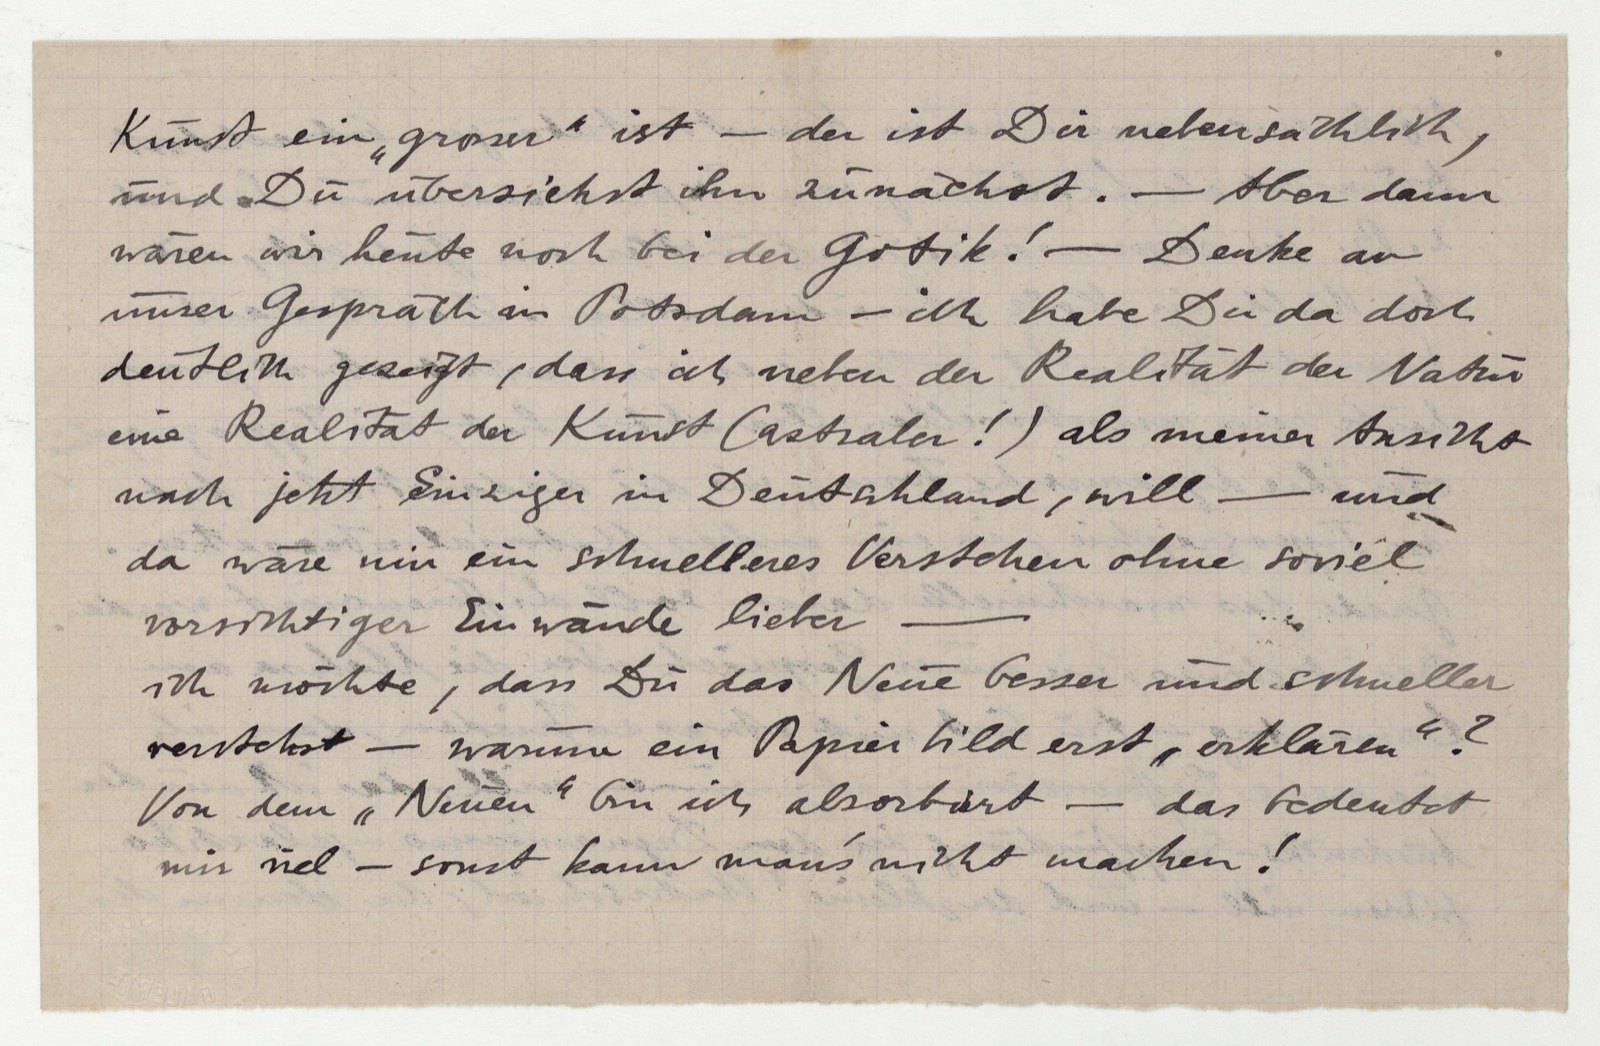 Kunst ein „grosser“ ist — der ist Dir nebensächlich,
und Du übersiehst ihn zunächst. — Aber dann
wären wir heute noch bei der Gotik! — Denke an
unser Gespräch in Potsdam — ich habe Dir da doch
deutlich gezeigt, dass ich neben der Realität der Natur
eine Realität der Kunst (astraler!) als meiner Ansicht
nach jetzt Einziger in Deutschland, will — und
da wäre mir ein schnelleres Verstehen ohne soviel
vorsichtiger Einwände lieber —
ich möchte, dass Du das Neue besser und schneller
verstehst — warum ein Papierbild erst „erklären“?
Von dem „Neuen“ bin ich absorbirt — das bedeutet
mir viel — sonst kann man's nicht machen!